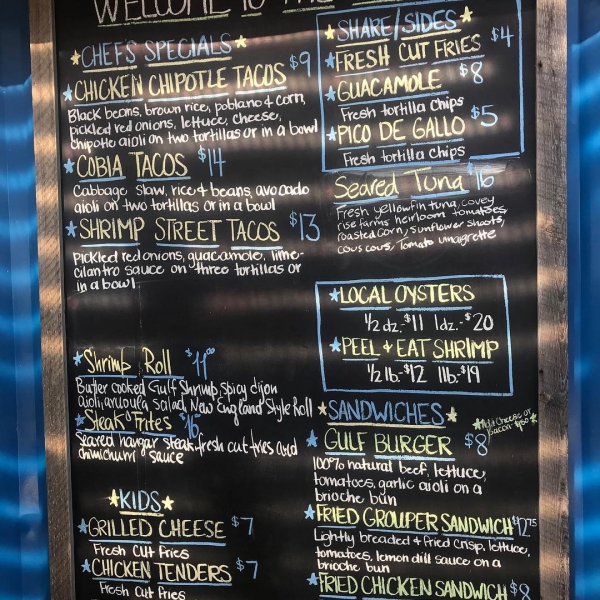 WELCOME TO THE
★CHEF'S SPECIALS★
★CHICKEN CHIPOTLE TACOS $9
Black beans, brown rice, poblano & corn,
pickled red onions, lettuce, cheese,
chipotle aioli on two tortillas or in a bowl
★COBIA TACOS $14
Cabbage slaw, rice & beans, avocado
aioli on two tortillas or in a bowl
★SHRIMP STREET TACOS $13
Pickled red onions, guacamole, lime-
cilantro sauce on three tortillas or
in a bowl
★Shrimp Roll $11.00
Butter cooked Gulf Shrimp, spicy dijon
aioli, arugula salad, New England Style Roll
★Steak Frites $16
Seared hangar steak, fresh cut fries and
chimichurri sauce
★KIDS★
★GRILLED CHEESE $7
Fresh Cut Fries
★CHICKEN TENDERS $7
Fresh Cut Fries
★SHARE/SIDES★
★FRESH CUT FRIES $4
★GUACAMOLE $8
Fresh tortilla chips
★PICO DE GALLO $5
Fresh tortilla chips
Seared Tuna $16
Fresh yellowfin tuna, covey
rise farms heirloom tomatoes,
roasted corn, sunflower shoots,
cous cous, tomato vinaigrette
★LOCAL OYSTERS
1/2 dz.-$11 1dz.-$20
★PEEL & EAT SHRIMP
1/2 lb-$12 1lb-$19
★SANDWICHES★
★Add Cheese or
Bacon $1.50★
★GULF BURGER $8
100% natural beef, lettuce,
tomatoes, garlic aioli on a
brioche bun
★FRIED GROUPER SANDWICH $12.75
Lightly breaded & fried crisp, lettuce,
tomatoes, lemon dill sauce on a
brioche bun
★FRIED CHICKEN SANDWICH $8